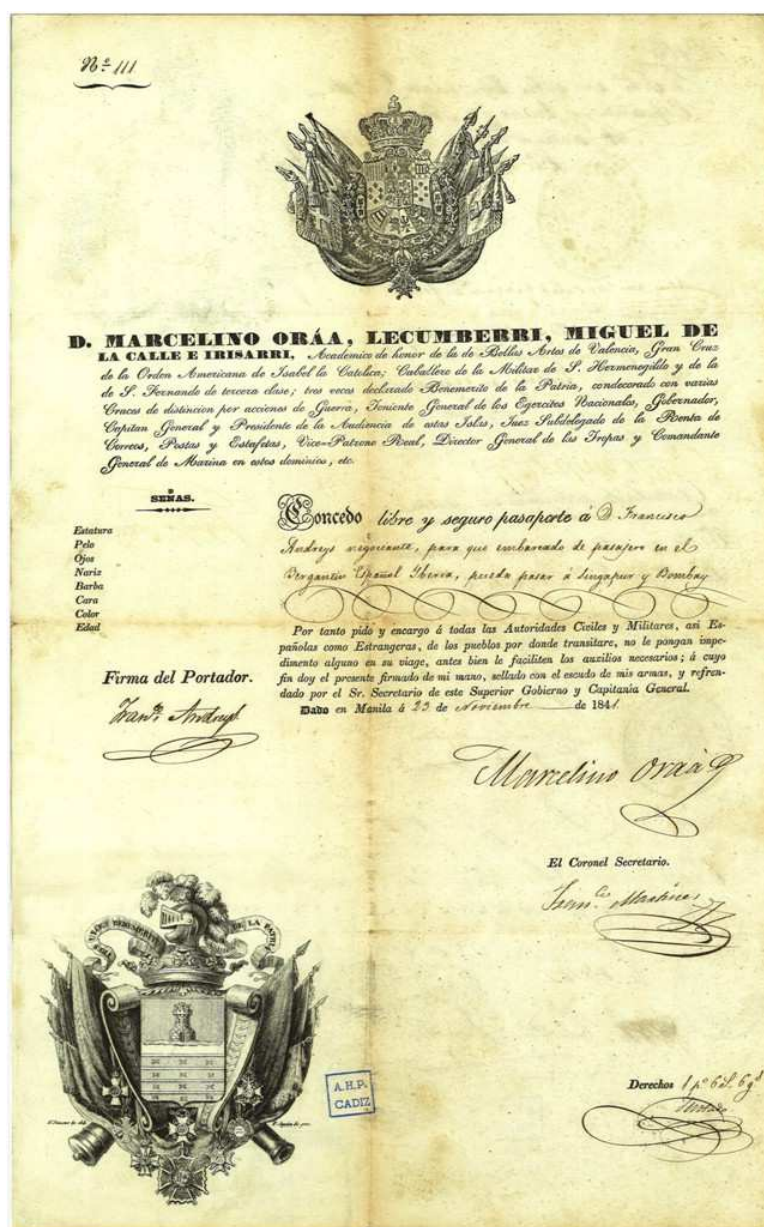 Nº 111
D. MARCELINO ORÁA, LECUMBERRI, MIGUEL DE
LA CALLE E IRISARRI, Academico de honor de la de Bellas Artes de Valencia, Gran Cruz
de la Orden Americana de Isabel la Catolica; Caballero de la Militar de S. Hermenegildo y de la
de S. Fernando de tercera clase; tres veces declarado Benemerito de la Patria, condecorado con varias
Cruces de distincion por acciones de Guerra, Teniente General de los Egercitos Nacionales, Gobernador,
Capitan General y Presidente de la Audiencia de estas Islas, Juez Subdelegado de la Renta de
Correos, Postas y Estafetas, Vice-Patrono Real, Director General de las Tropas y Comandante
General de Marina en estos dominios, etc.
SEÑAS.
Estatura
Pelo
Ojos
Nariz
Barba
Cara
Color
Edad
Firma del Portador.
Fran.co Andreys
Concedo libre y seguro pasaporte á D. Francisco
Andreys negociante, para que embarcado de pasajero en el
Bergantin Español Yberia, pueda pasar á Singapur y Bombay
Por tanto pido y encargo á todas las Autoridades Civiles y Militares, asi Es-
pañolas como Estrangeras, de los pueblos por donde transitare, no le pongan impe-
dimento alguno en su viage, antes bien le faciliten los auxilios necesarios; á cuyo
fin doy el presente firmado de mi mano, sellado con el escudo de mis armas, y refren-
dado por el Sr. Secretario de este Superior Gobierno y Capitanía General.
Dado en Manila á 23 de Noviembre de 1841.
Marcelino Oraá
El Coronel Secretario.
Fran.co Martinez
TRES VECES BENEMERITO DE LA PATRIA
A.H.P.
CADIZ
Derechos 1 p.º 6 s. 6 g.s